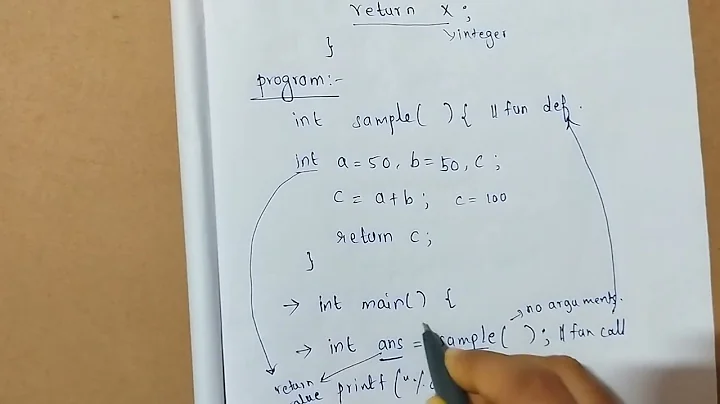 return x;
integer
}
program:-
int sample( ) { // fun def.
int a=50, b=50, c;
c = a+b; c = 100
return c;
}
→ int main() {
no arguments.
→ int ans = sample( ); // fun call
return
value printf ("%